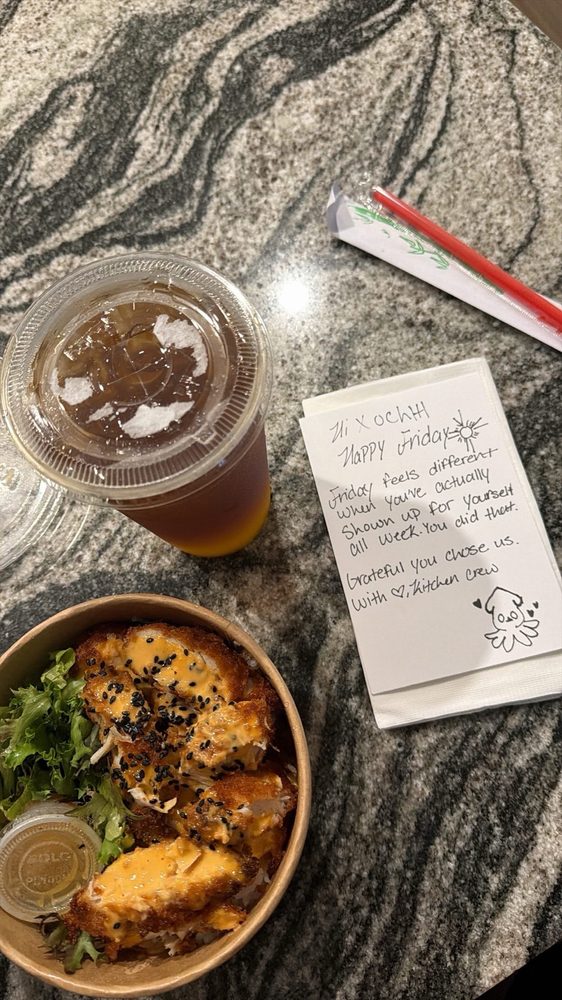 Hi Xochitl
Happy Friday
Friday feels different
when you've actually
Shown up for yourself
all week. You did that.
Grateful you chose us.
With ♡, Kitchen crew
SOLO